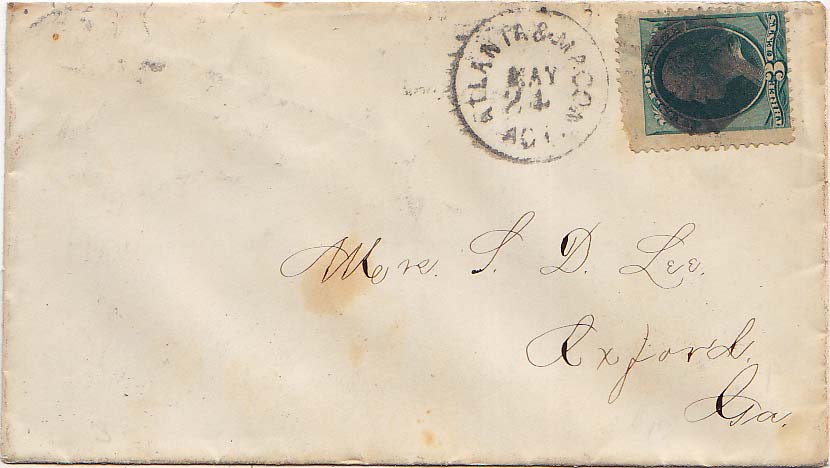 ATLANTA & MACON
MAY
24
AGT.
THREE
3
CENTS
POSTAGE
Mrs. S. D. Lee.
Oxford.
Ga.